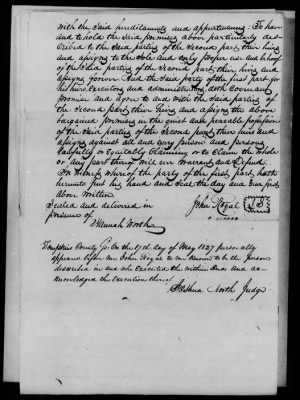 with the said hereditaments and appurtenances: To have
and to hold the said premises above particularly des-
cribed to the said party of the second part, their heirs
and assigns to the sole and only proper use and behoof
of the said party of the second part, their heirs and
assigns forever. And the said party of the first part for
his heirs, Executors and administrators, doth Covenant
promise and agree to and with the said party of the
second part, their heirs and assigns, the above
bargained premises in the quiet and peaceable possession
of the said party of the second part, their heirs and
assigns against all and every person and persons
lawfully or equitably claiming or to claim the whole
or any part thereof will ever Warrant and Defend.
In witness whereof the party of the first part, hath
hereunto set his hand and seal the day and year first
above written
Sealed and delivered in
presence of
John Royal L.S.
North
Tompkins County Ss. On the 17th day of May 1837 personally
appeared before me John Royal to me known to be the person
described in and who Executed the within Deed and ac-
knowledged the Execution thereof
Joshua North Judge